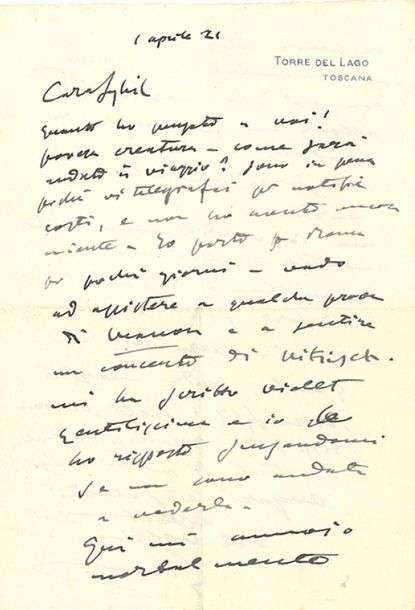 1 aprile 21
TORRE DEL LAGO
TOSCANA
Cara Sybil
Quanto ho pensato a voi!
povera creatura - come sarà
andato il viaggio? Sono in pena
perchè vi telegrafai per notizie
costì, e non ho avuto ancora
niente - Io parto p. Roma
per pochi giorni - vado
ad assistere a qualche prova
di Manon e a sentire
un concerto di Nikisch.
mi ha scritto Violet
gentilissima e io le
ho risposto scusandomi
se non sono andato
a vederla.
Qui mi annoio
mortalmente